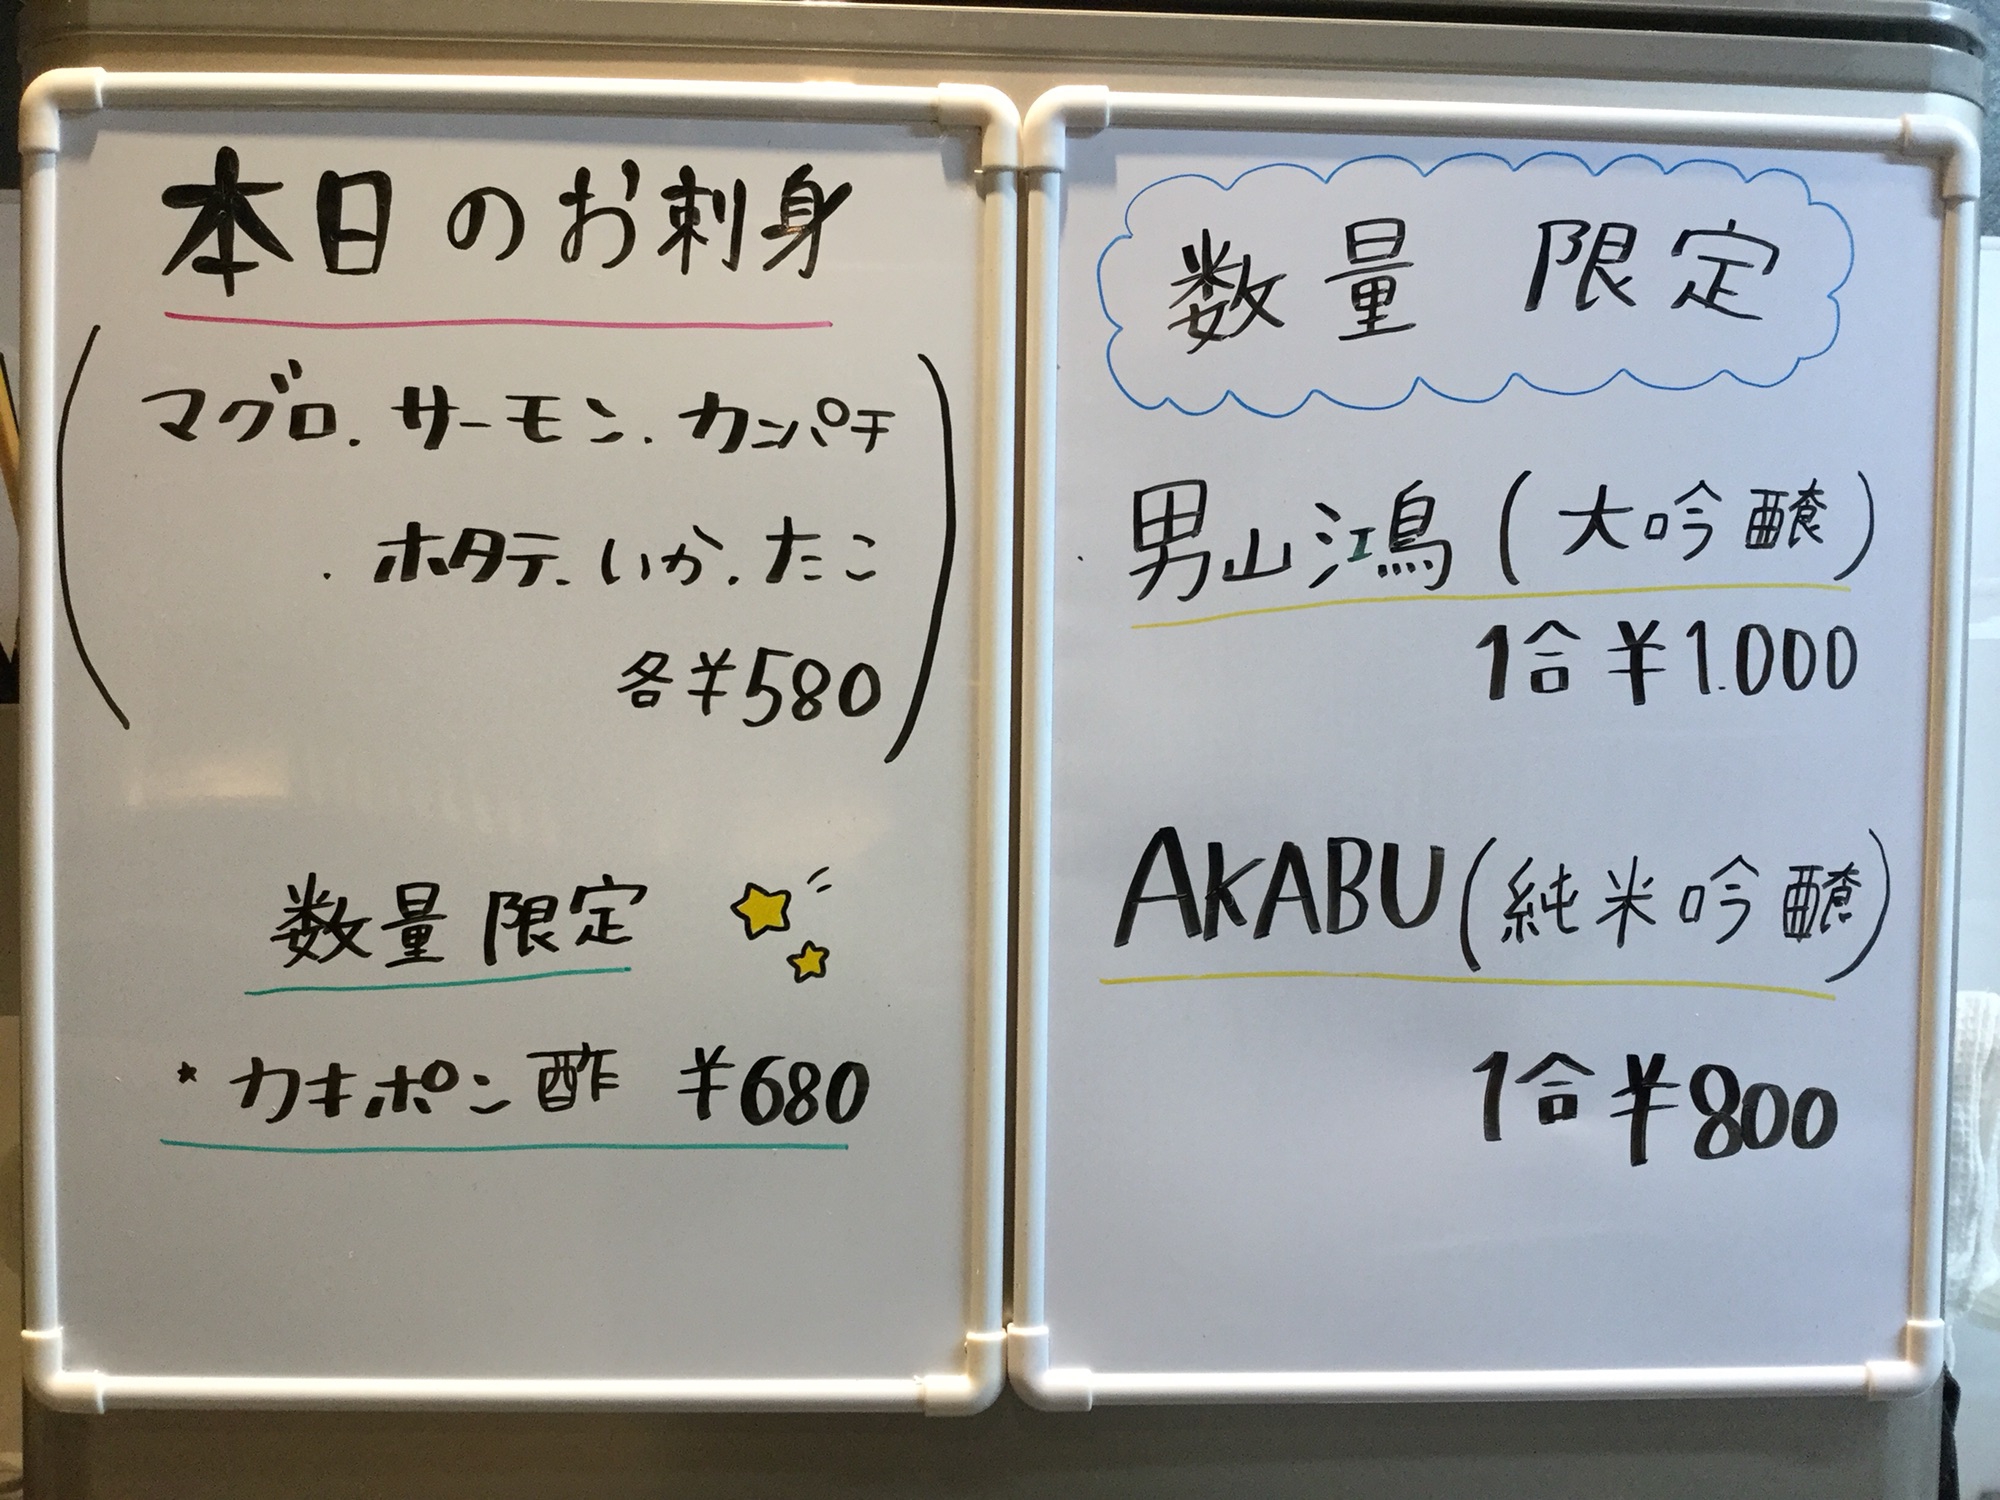 本日のお刺身
マグロ.サーモン.カンパチ
.ホタテ.いか.たこ
各¥580
数量限定
*カキポン酢 ¥680
数量限定
男山鴻(大吟醸)
1合¥1.000
AKABU(純米吟醸)
1合¥800